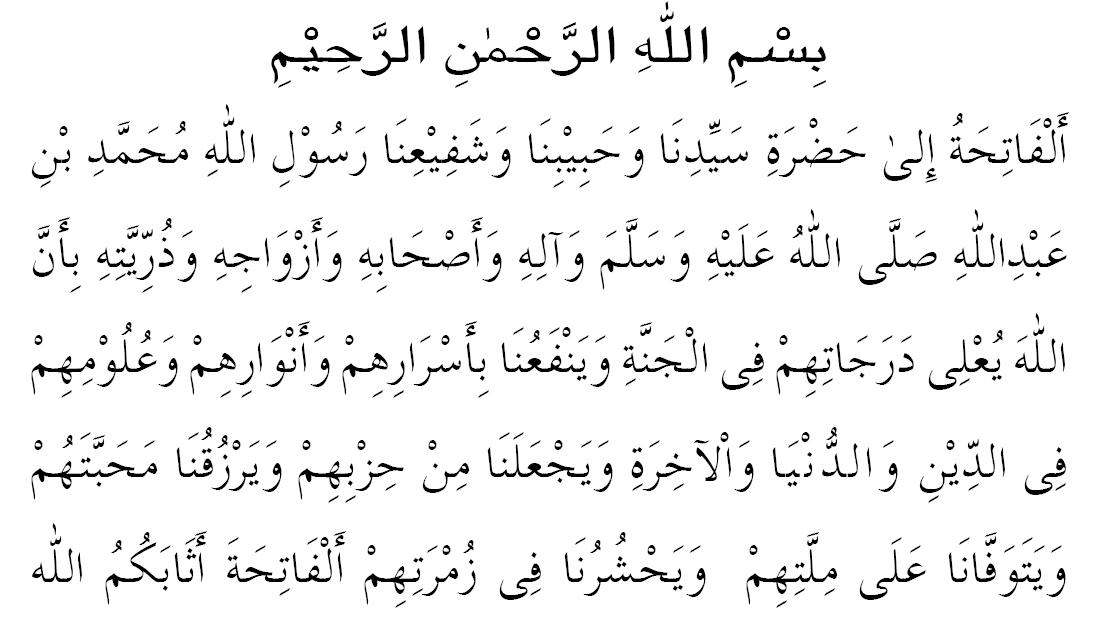 بِسْمِ اللّٰهِ الرَّحْمٰنِ الرَّحِيْمِ
أَلْفَاتِحَةُ إِلىٰ حَضْرَةِ سَيِّدِنَا وَحَبِيْبِنَا وَشَفِيْعِنَا رَسُوْلِ اللّٰهِ مُحَمَّدِ بْنِ
عَبْدِاللّٰهِ صَلَّى اللّٰهُ عَلَيْهِ وَسَلَّمَ وَآلِهِ وَأَصْحَابِهِ وَأَزْوَاجِهِ وَذُرِّيَّتِهِ بِأَنَّ
اللّٰهَ يُعْلِى دَرَجَاتِهِمْ فِى الْجَنَّةِ وَيَنْفَعُنَا بِأَسْرَارِهِمْ وَأَنْوَارِهِمْ وَعُلُوْمِهِمْ
فِى الدِّيْنِ وَالدُّنْيَا وَاْلآخِرَةِ وَيَجْعَلَنَا مِنْ حِزْبِهِمْ وَيَرْزُقُنَا مَحَبَّتَهُمْ
وَيَتَوَفَّانَا عَلَى مِلَّتِهِمْ وَيَحْشُرُنَا فِى زُمْرَتِهِمْ أَلْفَاتِحَةَ أَثَابَكُمُ اللّٰه